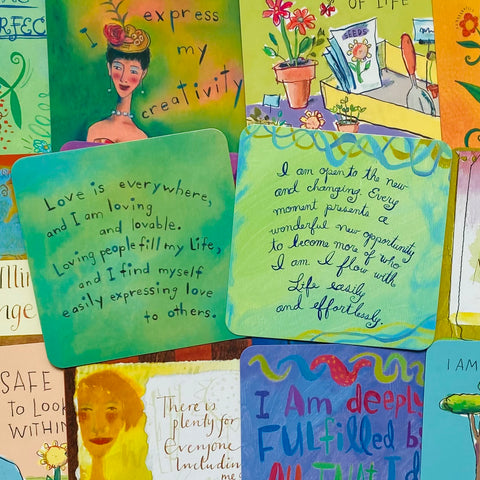 PERFEC
I express
my
creativity
OF LIFE
SEEDS
Love is everywhere,
and I am loving
and lovable.
Loving people fill my life,
and I find myself
easily expressing love
to others.
I am open to the new
and changing. Every
moment presents a
wonderful new opportunity
to become more of who
I am. I flow with
Life easily
and effortlessly.
llin
nge
SAFE
TO LOOK
WITHIN
There is
plenty for
Everyone
Including
me
I Am deeply
FULfilled by
All THAT I d
I AM